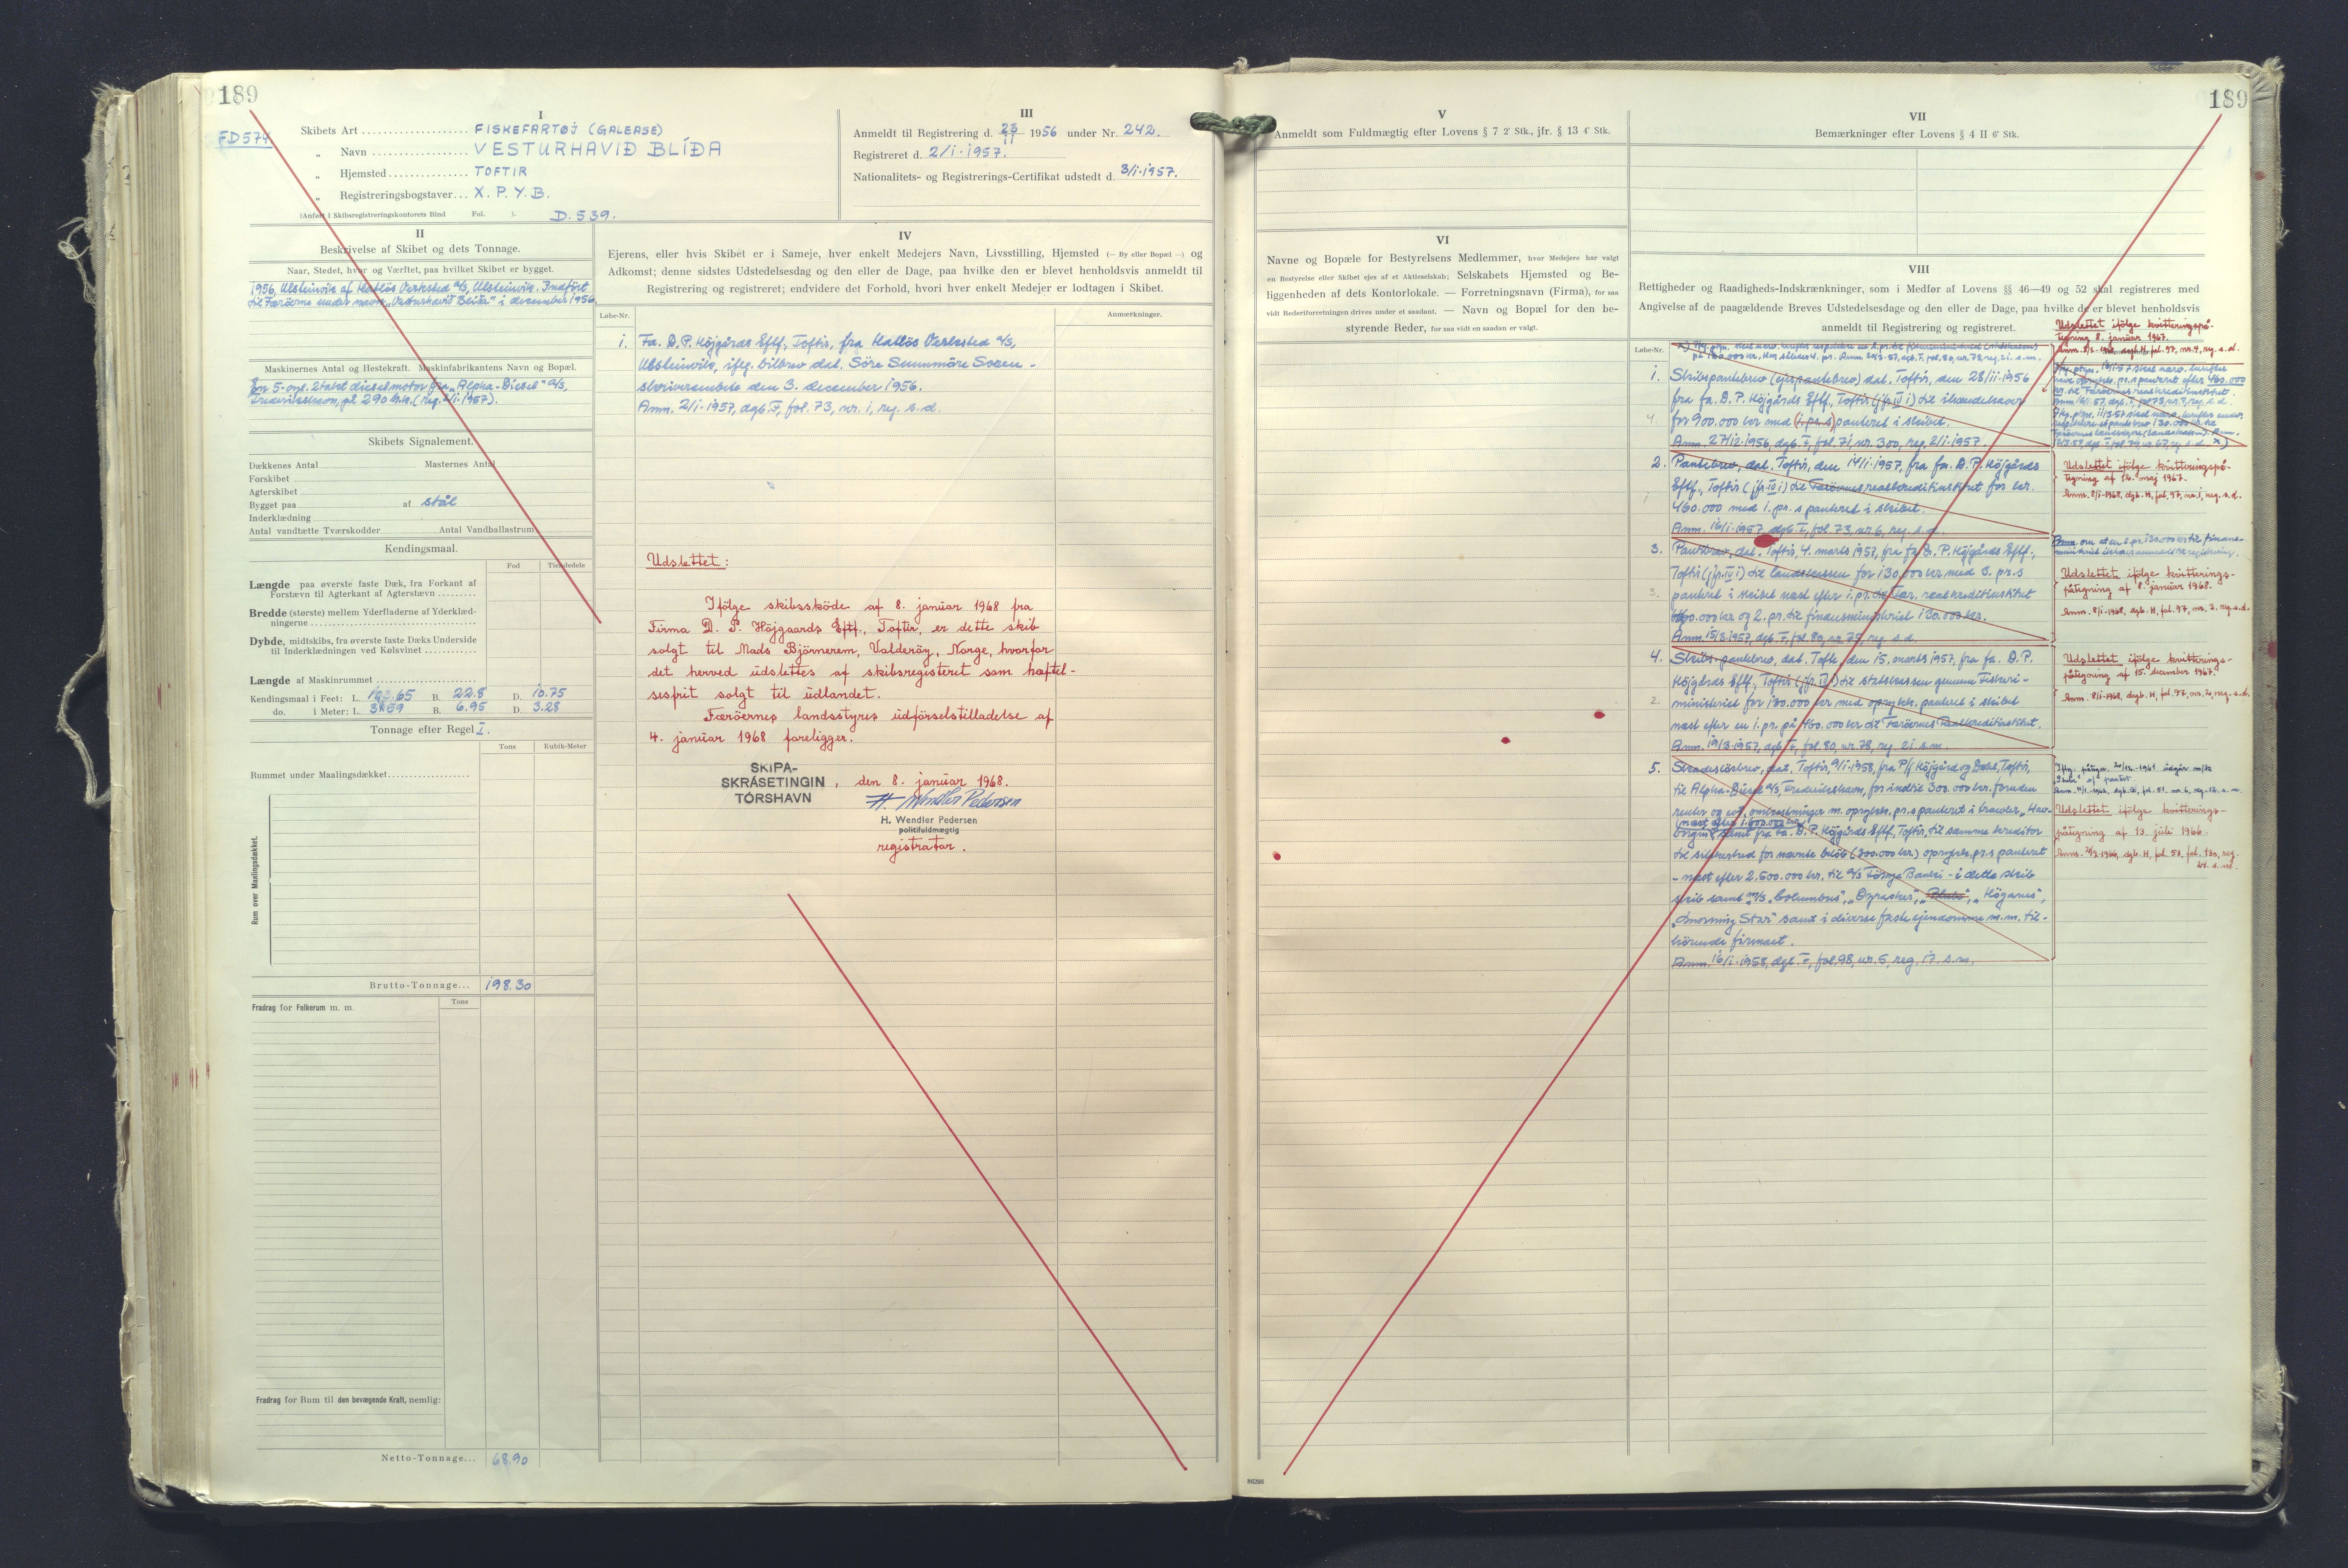 189
FD574
I
Skibets Art .................... FISKEFARTØJ (GALEASE)
„ Navn .................. VESTURHAVIÐ BLÍÐA
„ Hjemsted............... TOFTIR
„ Registreringsbogstaver... X. P. Y. B.
(Anført i Skibsregistreringskontorets Bind Fol. ). D. 539.
III
Anmeldt til Registrering d. 23/11 1956 under Nr. 242.
Registreret d. 2/1-1957.
Nationalitets- og Registrerings-Certifikat udstedt d. 3/1-1957.
II
Beskrivelse af Skibet og dets Tonnage.
Naar, Stedet, hvor og Værftet, paa hvilket Skibet er bygget.
1956, Ulsteinvik af Hatlös Verksted A/S, Ulsteinvik. Indført
til Færöerne under navn „Vesturhavið Blíða" i december 1956.
Maskinernes Antal og Hestekraft. Maskinfabrikantens Navn og Bopæl.
En 5-cyl. 2takt dieselmotor fra „Alpha-Diesel" A/S,
Frederikshavn, på 290 h.k. (reg. 2/1-1957).
Skibets Signalement.
Dækkenes Antal Masternes Antal
Forskibet
Agterskibet
Bygget paa af stål
Inderklædning
Antal vandtætte Tværskodder Antal Vandballastrum
Kendingsmaal.
Fod Tiendedele
Længde paa øverste faste Dæk, fra Forkant af
Forstævn til Agterkant af Agterstævn
Bredde (største) mellem Yderfladerne af Yderklæd-
ningerne
Dybde, midtskibs, fra øverste faste Dæks Underside
til Inderklædningen ved Kølsvinet
Længde af Maskinrummet
Kendingsmaal i Feet: L. 103.65 B. 22.8 D. 10.75
do. i Meter: L. 31.59 B. 6.95 D. 3.28
Tonnage efter Regel I.
Tons Kubik-Meter
Rummet under Maalingsdækket
Rum over Maalingsdækket.
Brutto-Tonnage... 198.30
Tons
Fradrag for Folkerum m. m.
Fradrag for Rum til den bevægende Kraft, nemlig:
Netto-Tonnage... 68.90
IV
Ejerens, eller hvis Skibet er i Sameje, hver enkelt Medejers Navn, Livsstilling, Hjemsted (— By eller Bopæl —) og
Adkomst; denne sidstes Udstedelsesdag og den eller de Dage, paa hvilke den er blevet henholdsvis anmeldt til
Registrering og registreret; endvidere det Forhold, hvori hver enkelt Medejer er lodtagen i Skibet.
Løbe-Nr. Anmærkninger.
1. Fa. D.P. Höjgårds Eftf., Toftir, fra Hatlös Verksted A/S,
Ulsteinvik, iflg. bilbrev dat. Söre Sunnmöre Soren-
skriverembede den 3. december 1956.
Anm. 2/1-1957, dgb. F, fol. 73, nr. 1, reg. s.d.
Udslettet:
Ifölge skibsskøde af 8. januar 1968 fra
Firma D. P. Höjgaards Eftf., Toftir, er dette skib
solgt til Mads Björnerem, Valderöy, Norge, hvorfor
det herved udslettes af skibsregisteret som hæftel-
sesfrit solgt til udlandet.
Færöernes landsstyres udförselstilladelse af
4. januar 1968 foreligger.
SKIPA-
SKRÁSETINGIN
TÓRSHAVN
, den 8. januar 1968.
H. Wendler Pedersen
H. Wendler Pedersen
politifuldmægtig
registrator.
189
V
Anmeldt som Fuldmægtig efter Lovens § 7 2' Stk., jfr. § 13 4' Stk.
VII
Bemærkninger efter Lovens § 4 II 6' Stk.
VI
Navne og Bopæle for Bestyrelsens Medlemmer, hvor Medejere har valgt
en Bestyrelse eller Skibet ejes af et Aktieselskab; Selskabets Hjemsted og Be-
liggenheden af dets Kontorlokale. — Forretningsnavn (Firma), for saa
vidt Rederiforretningen drives under et saadant. — Navn og Bopæl for den be-
styrende Reder, for saa vidt en saadan er valgt.
VIII
Rettigheder og Raadigheds-Indskrænkninger, som i Medfør af Lovens §§ 46—49 og 52 skal registreres med
Angivelse af de paagældende Breves Udstedelsesdage og den eller de Dage, paa hvilke de er blevet henholdsvis
anmeldt til Registrering og registreret.
Løbe-Nr.
1. Skibspantebrev (ejerpantebrev) dat. Toftir, den 28/11-1956
fra fa. D.P. Höjgårds Eftf., Toftir (jfr. IV 1) til ihændehaver
4. for 900.000 kr med (1. pr. s) panteret i skibet.
Anm. 27/12-1956, dgb. F, fol. 71 nr. 300, reg. 2/1-1957.
Udslettet ifölge kvitteringspå-
tegning 8. januar 1967.
2. Pantebrev, dat. Toftir, den 14/1-1957, fra fa. D.P. Höjgårds
Eftf., Toftir (jfr. IV 1) til Færöernes realkreditinstitut for kr.
1 460.000 med 1. pr. s panteret i skibet.
Anm. 16/1-1957, dgb. F, fol. 73, nr. 6, reg. s.d.
Udslettet ifölge kvitteringspå-
tegning af 12. maj 1967.
Anm. 8/1-1968, dgb. H, fol. 97, nr. 1, reg. s.d.
3. Pantebrev, dat. Toftir, 4. marts 1957, fra fa. D.P. Höjgårds Eftf.,
Toftir (jfr. IV 1) til landskassen for 130.000 kr med 3. pr. s
3. panteret i skibet næst efter 1. pr. til Fær. realkreditinstitut
460.000 kr og 2. pr. til finansministeriet 130.000 kr.
Anm. 15/3-1957, dgb. F, fol. 80, nr. 75, reg. s.d.
Udslettet ifölge kvitterings-
påtegning af 8. januar 1968.
Anm. 8/1-1968, dgb. H, fol. 97, nr. 3, reg. s.d.
4. Skibs-pantebrev, dat. Tofte, den 15. marts 1957, fra fa. D.P.
Höjgårds Eftf., Toftir (jfr. IV 1) til statskassen gennem Fiskeri-
2. ministeriet for 130.000 kr med oprykk. panteret i skibet
næst efter en 1. pr. på 460.000 kr til Færöernes Realkreditinstitut.
Anm. 19/3-1957, dgb. F, fol. 80, nr. 78, reg. 21 s.m.
Udslettet ifölge kvitterings-
påtegning af 15. december 1967.
Anm. 8/1-1968, dgb. H, fol. 97, nr. 2, reg. s.d.
5. Skadeslösbrev, dat. Toftir, 9/1-1958, fra P/f Höjgård og Dahl, Toftir,
til Alpha-Diesel A/S, Frederikshavn, for indtil 300.000 kr. foruden
renter og evt. omkostninger m. oprykk. pr. s panteret i trawler „Hav-
(næst efter 1.600.000 kr.)
borgin", samt fra fa. D.P. Höjgårds Eftf., Toftir, til samme kreditor
til sikkerhed for nævnte beløb (300.000 kr) oprykk. pr. s panteret
- næst efter 2.500.000 kr. til A/S Föroya Banki - i dette skib
skib samt m/s „Columbus", „Opraskur", „Høganes",
„Morning Star" samt i diverse faste ejendomme m.m. til-
hörende firmaet.
Anm. 16/1-1958, dgb. F, fol. 98, nr. 5, reg. 17. s.m.
Udslettet ifölge kvitterings-
påtegning af 13. juli 1966.
86298